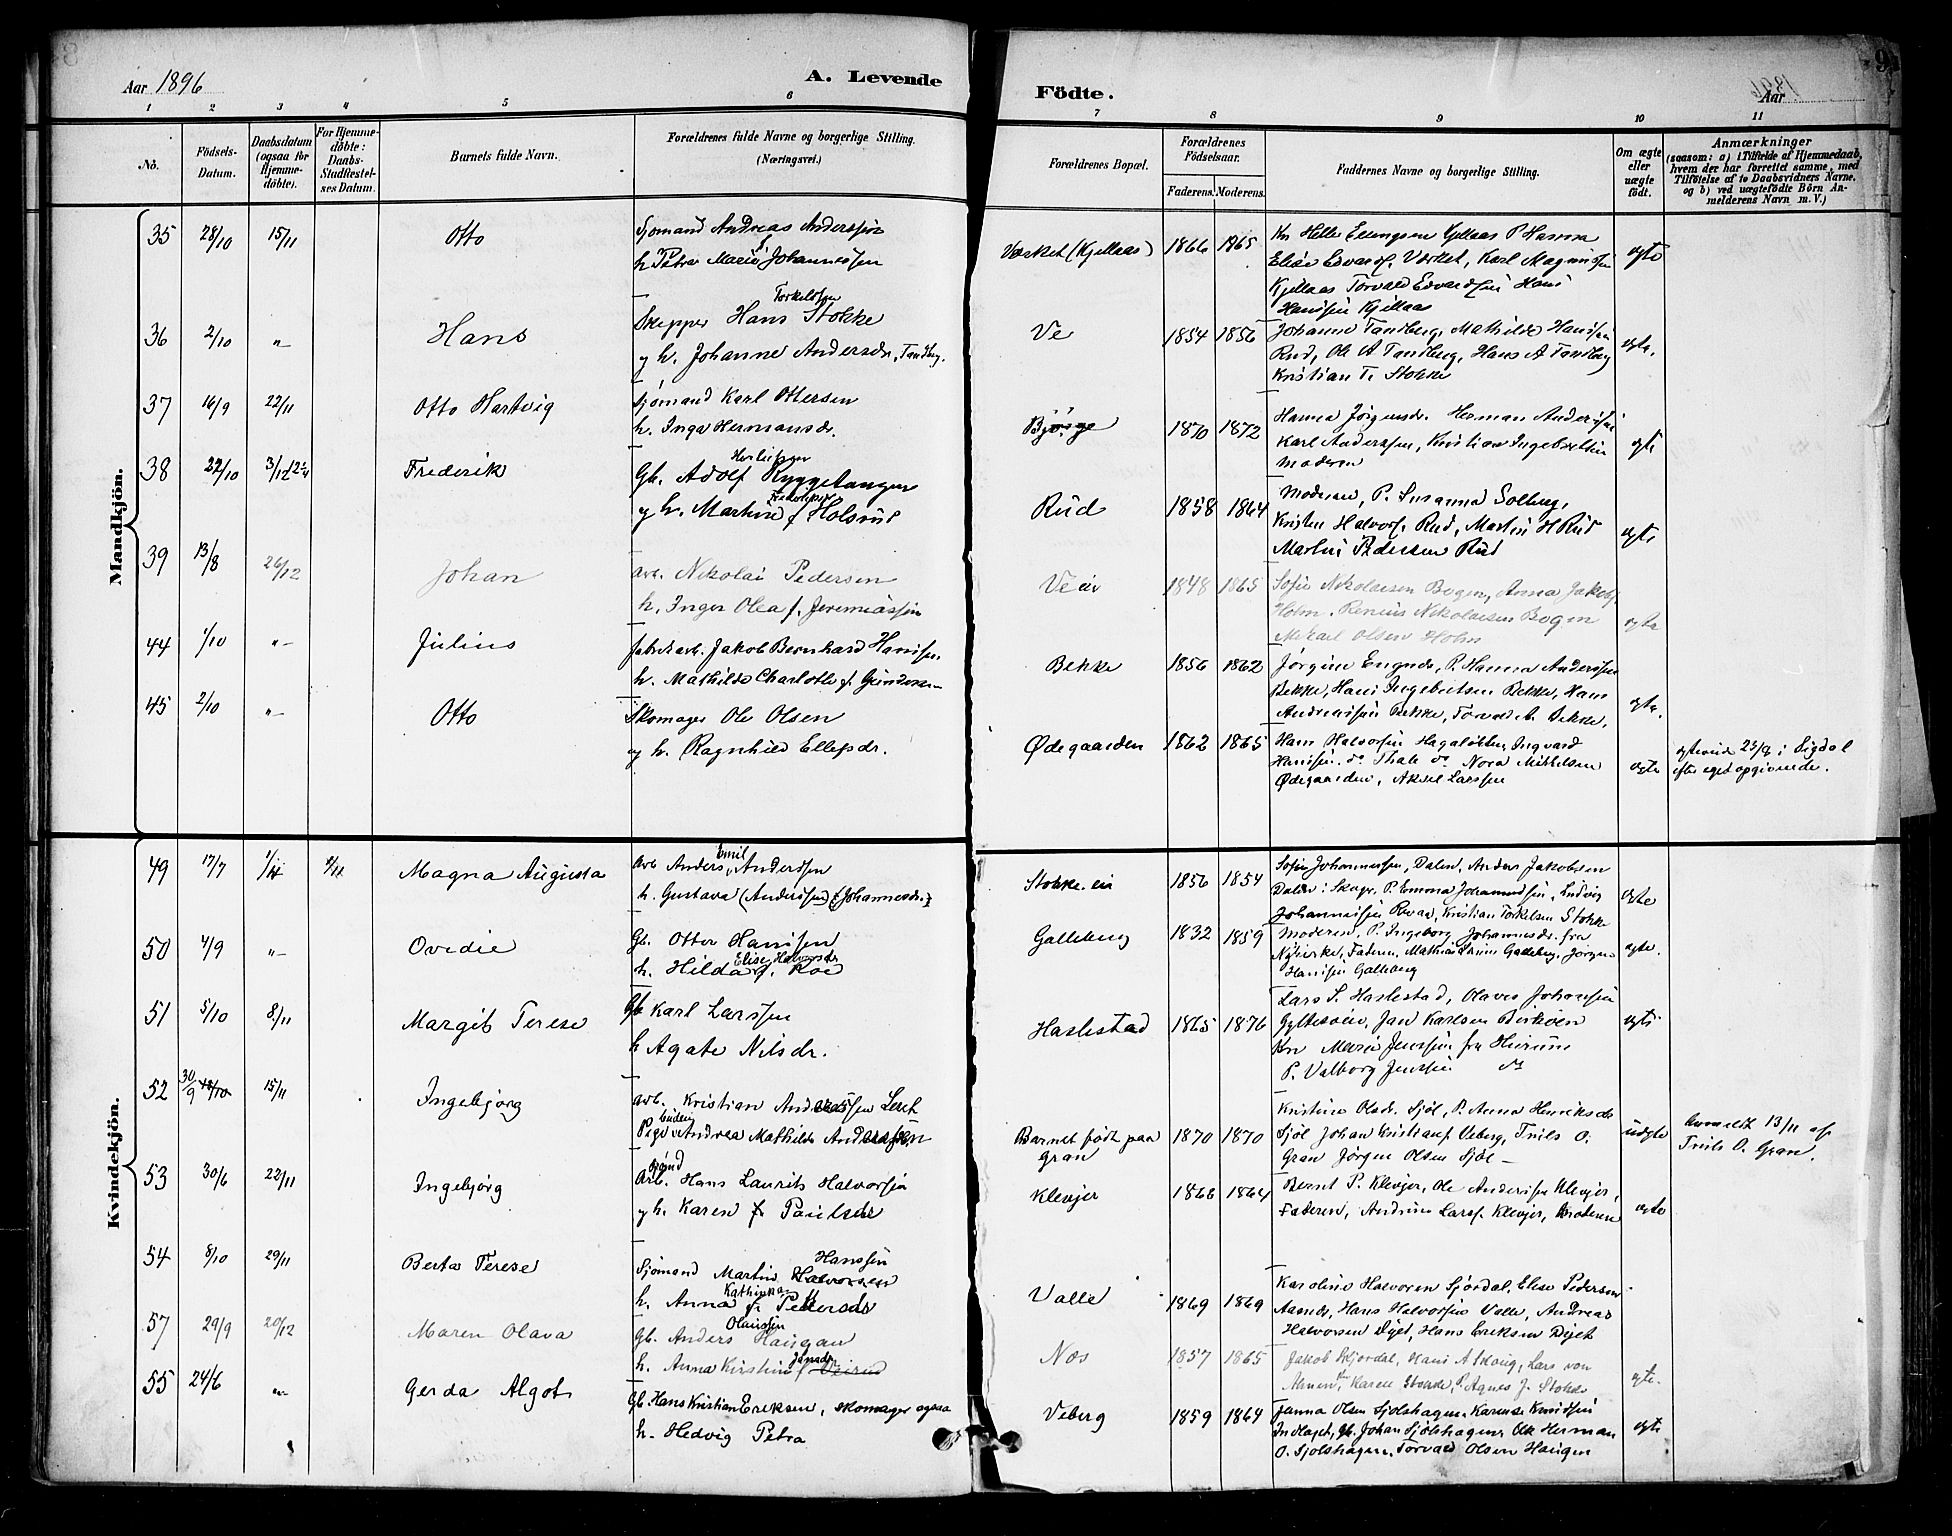 Aar 1896
A. Levende
Födte.
Aar
1 2 3 4 5 6 7 8 9 10 11
No.
Födsels-Datum.
Daabsdatum (ogsaa for Hjemmedöbte).
For Hjemmedöbte: Daabs-Stadfæstelses Datum.
Barnets fulde Navn.
Forældrenes fulde Navne og borgerlige Stilling.
(Næringsvei.)
Forældrenes Bopæl.
Forældrenes Födselsaar.
Faderens. Moderens.
Faddernes Navne og borgerlige Stilling.
Om ægte eller uægte födt.
Anmærkninger
(saasom: a) i Tilfælde af Hjemmedaab,
hvem der har forrettet samme, med
Tilföielse af to Daabsvidners Navne,
og b) ved uægtefödte Börn An-
melderens Navn m. V.)
Mandkjön.
35 28/10 15/11 Otto
Sjömand Andreas Anderssen
h. Petra Marie Johannessen
Værket (Kjellaas) 1866 1865
Kjellaas P. Hanna
Værket, Karl Magnussen
Kjellaas Torvald Edvardsen Hans
Hanssen Kjellaas
ægte
36 2/10 „ Hans
Torkelssen
Skipper Hans Stokke
og h. Johanne Andersdr. Tandbg.
Ve 1854 1856
Johanne Tandberg, Mathilde Hanssen
Rud, Ole A Tandberg, Hans A Tandberg
Kristian T. Stokke
ægte.
37 16/9 22/11 Otto Hartvig
Sjömand Karl Ottersen
h. Inga Hermansdr.
1870 1872
Hanna Jörgensdr. Herman Anderssen
Karl Anderssen, Kristian Ingebretsen
Moderen
ægte
38 22/10 3/12 Frederik
Gb. Adolf Ryggetangen
og h. Martine f. Holsrud
Rud 1858 1864
Moderen, P. Susanna Solberg,
Kristen Halvors. Rud, Martin H Rud
Martin Pedersen Rud
ægte
39 13/8 26/12 Johan
arb. Nikolai Pedersen
h. Inger Olea f. Jeremiassen
1848 1865
Sofie Nikolaisen Bogen, Anna Jakobs.
Holm, Nikolaisen Bogen
Mikael Olsen Holm
ægte
44 1/10 „ Julius
fabrikarb. Jakob Bernhard Hanssen
h. Mathilde Charlotte f. Gundersen
Bekke 1856 1862
Jörgine Engnds, P. Hanna Anderssen
Bekke, Hans Ingebretsen Bekke, Hans
Andreassen Bekke, Torvald A. Bekke.
ægte.
45 2/10 „ Otto
Skomager Ole Olsen
og h. Ragnhild Ellefsdr.
Ødegaarden 1862 1865
Hans Halvorsen Ingvard
Hanssen do Thale do Nora Mikkelsen
Ødegaarden, Aksel Larssen
ægte
ægteviet 25/9 i Sigdal
efter eget opgivende.
Kvindekjön.
49 17/7 1/11 1/11 Magna Augusta
Emil
Arb Anders Anderssen
h. Gustava (Anderssen) f. Johannesdr.
Stokke ei 1856 1854
Sofie Johannessen, Dalen, Anders Jakobsen
Dalen i Skoger, P. Emma Johannessen, Ludvig
Johannessen Revaa, Kristian Torkelsen Stokke
ægte
50 4/9 „ Ovidie
Gb. Otter Hanssen
Elise Halvorsdr
h. Hilda f. Roe
Galleberg 1832 1859
Moderen, P. Ingeborg Johannesdr. fra
Nykirke, Faderen, Mathias Galleberg, Jörgen
Hanssen Galleberg
ægte.
51 5/10 8/11 Margit Terese
Gb Karl Larssen
h Agate Nilsdr.
Haslestad 1865 1876
Lars S. Haslestad, Olaves Johansen
Jan Karlsen
Marie Jenssen fra Hurum
P. Valborg Jenssen do
ægte
52 30/9 18/10 15/11 Ingebjörg
arb. Kristian Andreassen
Pige Andrea Mathilde Anderssen
Barnet födt paa
Gran
1870 1870
Kristine Olsdr. Sjöl, P. Anna Henriksdr
Sjöl Johan Kristians. Veberg, Truls O.
Gran Jörgen Olsen Sjöl —
uægte
Anmeldt 13/11 af
Truls O. Gran.
53 30/6 22/11 Ingebjörg
Arb. Hans Laurits Halvorsen
og h. Karen f. Paulsdr
Klevjer 1866 1864
Bernt P. Klevjer, Ole Anderssen Klevjer,
Faderen, Andrine Larss. Klevjer, Moderen
ægte
54 8/10 29/11 Berta Terese
Hanssen
Sjömand Martin Halvorsen
Kathinka
h. Anna f. Pedersdr
Valle 1869 1869
Karoline Halvorsen Sjördal, Elise Pedersen
Hans Halvorsen Valle, Andreas
Halvorsen Hans Eriksen
57 29/9 20/12 Maren Olava
Olaussen
Gb. Anders Haugan
Jensdr
h. Anna Kristine f.
Nes 1857 1865
Jakob Skjordal, Hans A Skoug, Lars von
Karen Stokke, P. Agnes J. Stokke
ægte.
55 24/6 „ Gerda Algot
Gb. Hans Kristian Eriksen, skomager ogsaa
h. Hedvig Petra
Veberg 1859 1864
Janna Olsen Sjölshagen, Karense Knudsen
Indlaget, Gb. Johan Sjölshagen, Ole Herman
O. Sjölshagen, Torvald Olsen Haugen
ægte